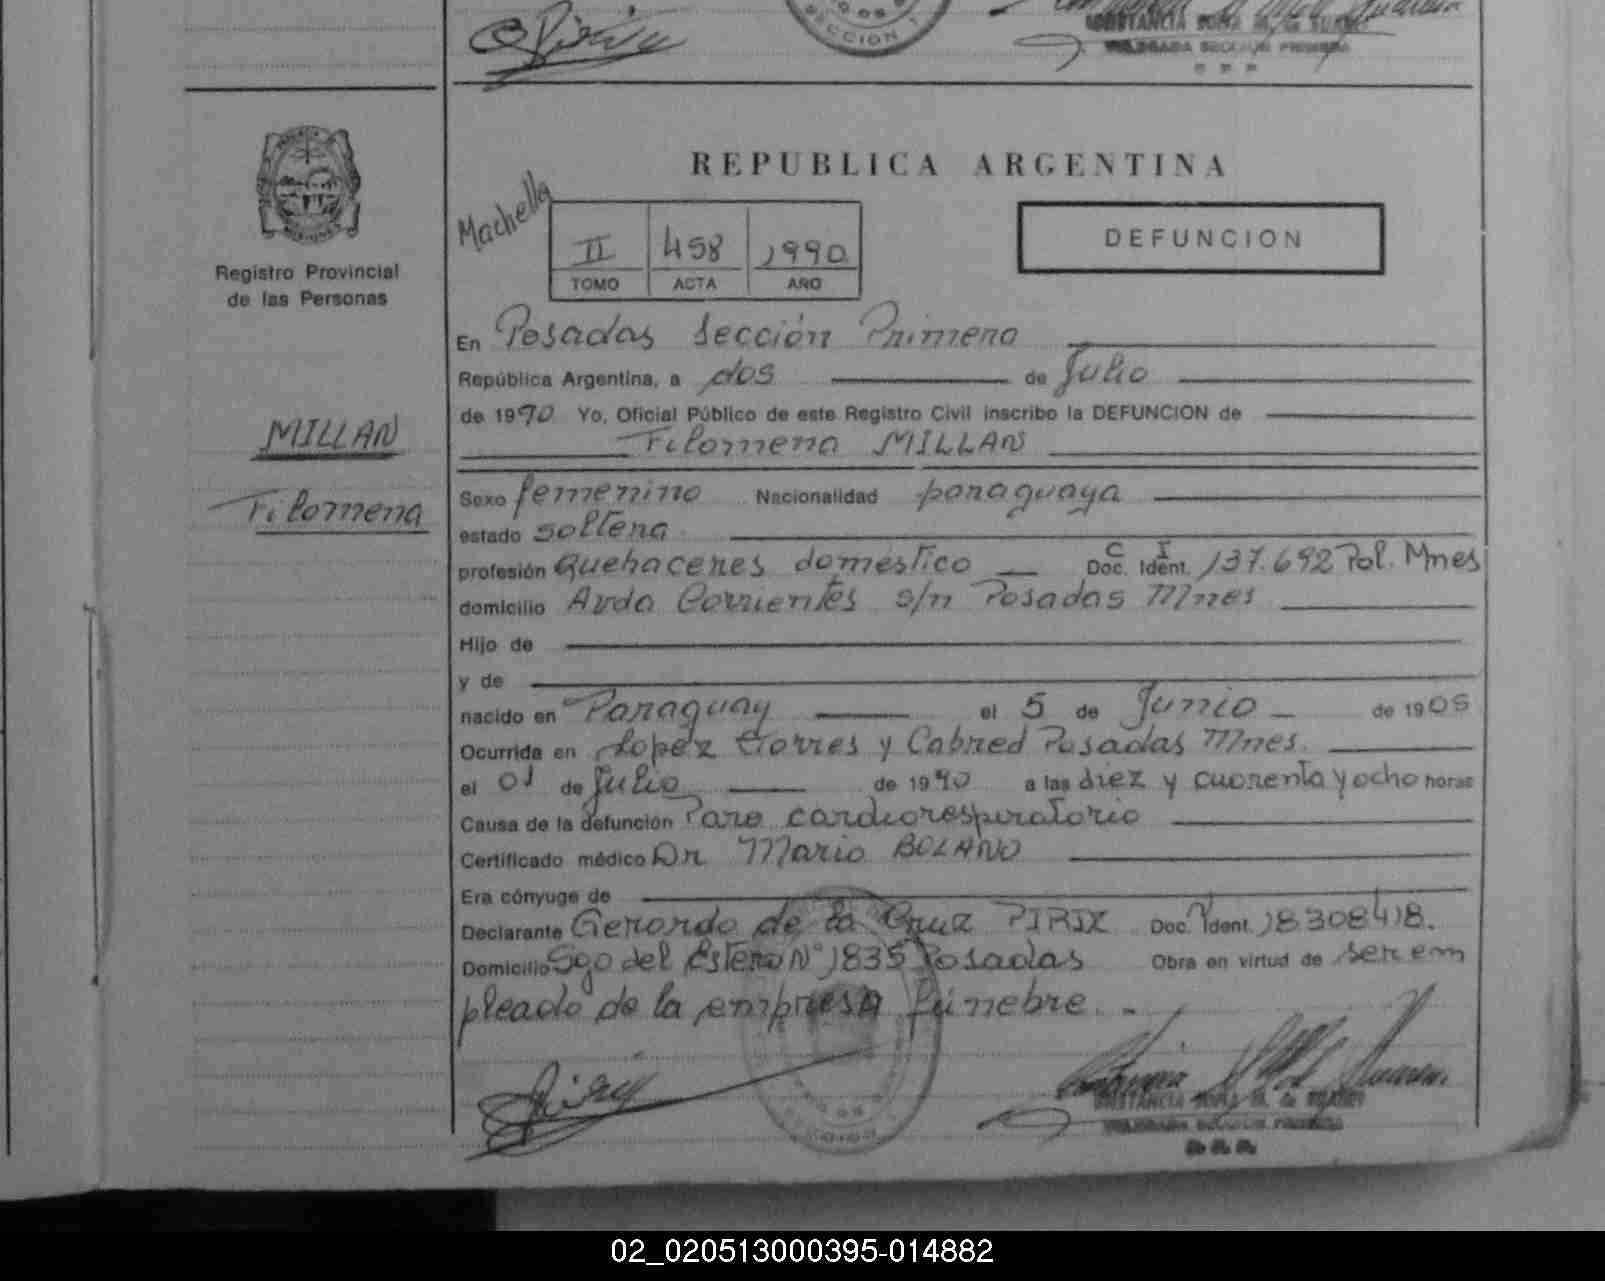 SECCION 1
REPUBLICA ARGENTINA
Registro Provincial
de las Personas
Machella
II 458 1990
TOMO ACTA AÑO
DEFUNCION
En Posadas Sección Primera
República Argentina, a dos de Julio
de 1990 Yo, Oficial Público de este Registro Civil inscribo la DEFUNCION de
Filomena MILLAN
MILLAN
Filomena
Sexo femenino Nacionalidad paraguaya
estado soltera
profesión Quehaceres domestico Doc. Ident. C I 137.692 Pol. Mnes
domicilio Avda Corrientes s/n Posadas Mnes
Hijo de
y de
nacido en Paraguay el 5 de Junio de 1905
Ocurrida en Lopez Torres y Cabred Posadas Mnes.
el 01 de Julio de 1990 a las diez y cuarenta y ocho horas
Causa de la defunción Paro cardiorespiratorio
Certificado médico Dr. Mario BOLANO
Era cónyuge de
Declarante Gerardo de la Cruz PIRIZ Doc. Ident. 18308418.
Domicilio Sgo del Estero N° 1835 Posadas Obra en virtud de ser em
pleado de la empresa fúnebre. -
02_020513000395-014882